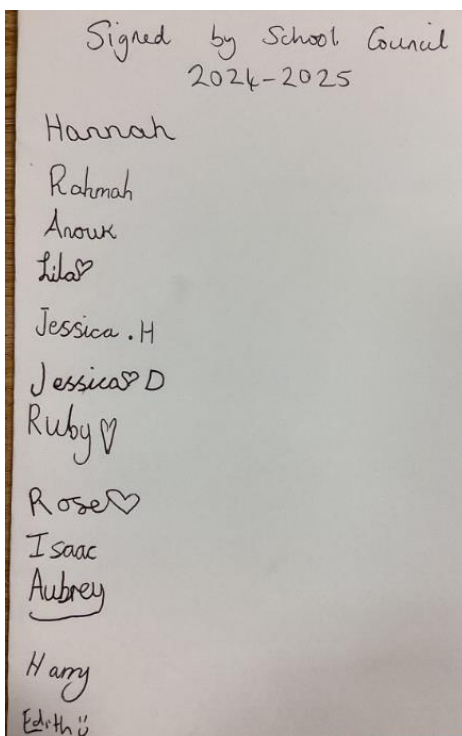 Signed by School Council
2024-2025
Hannah
Rahmah
Anouk
Lila♡
Jessica.H
Jessica♡D
Ruby♡
Rose♡
Isaac
Aubrey
Harry
Edith